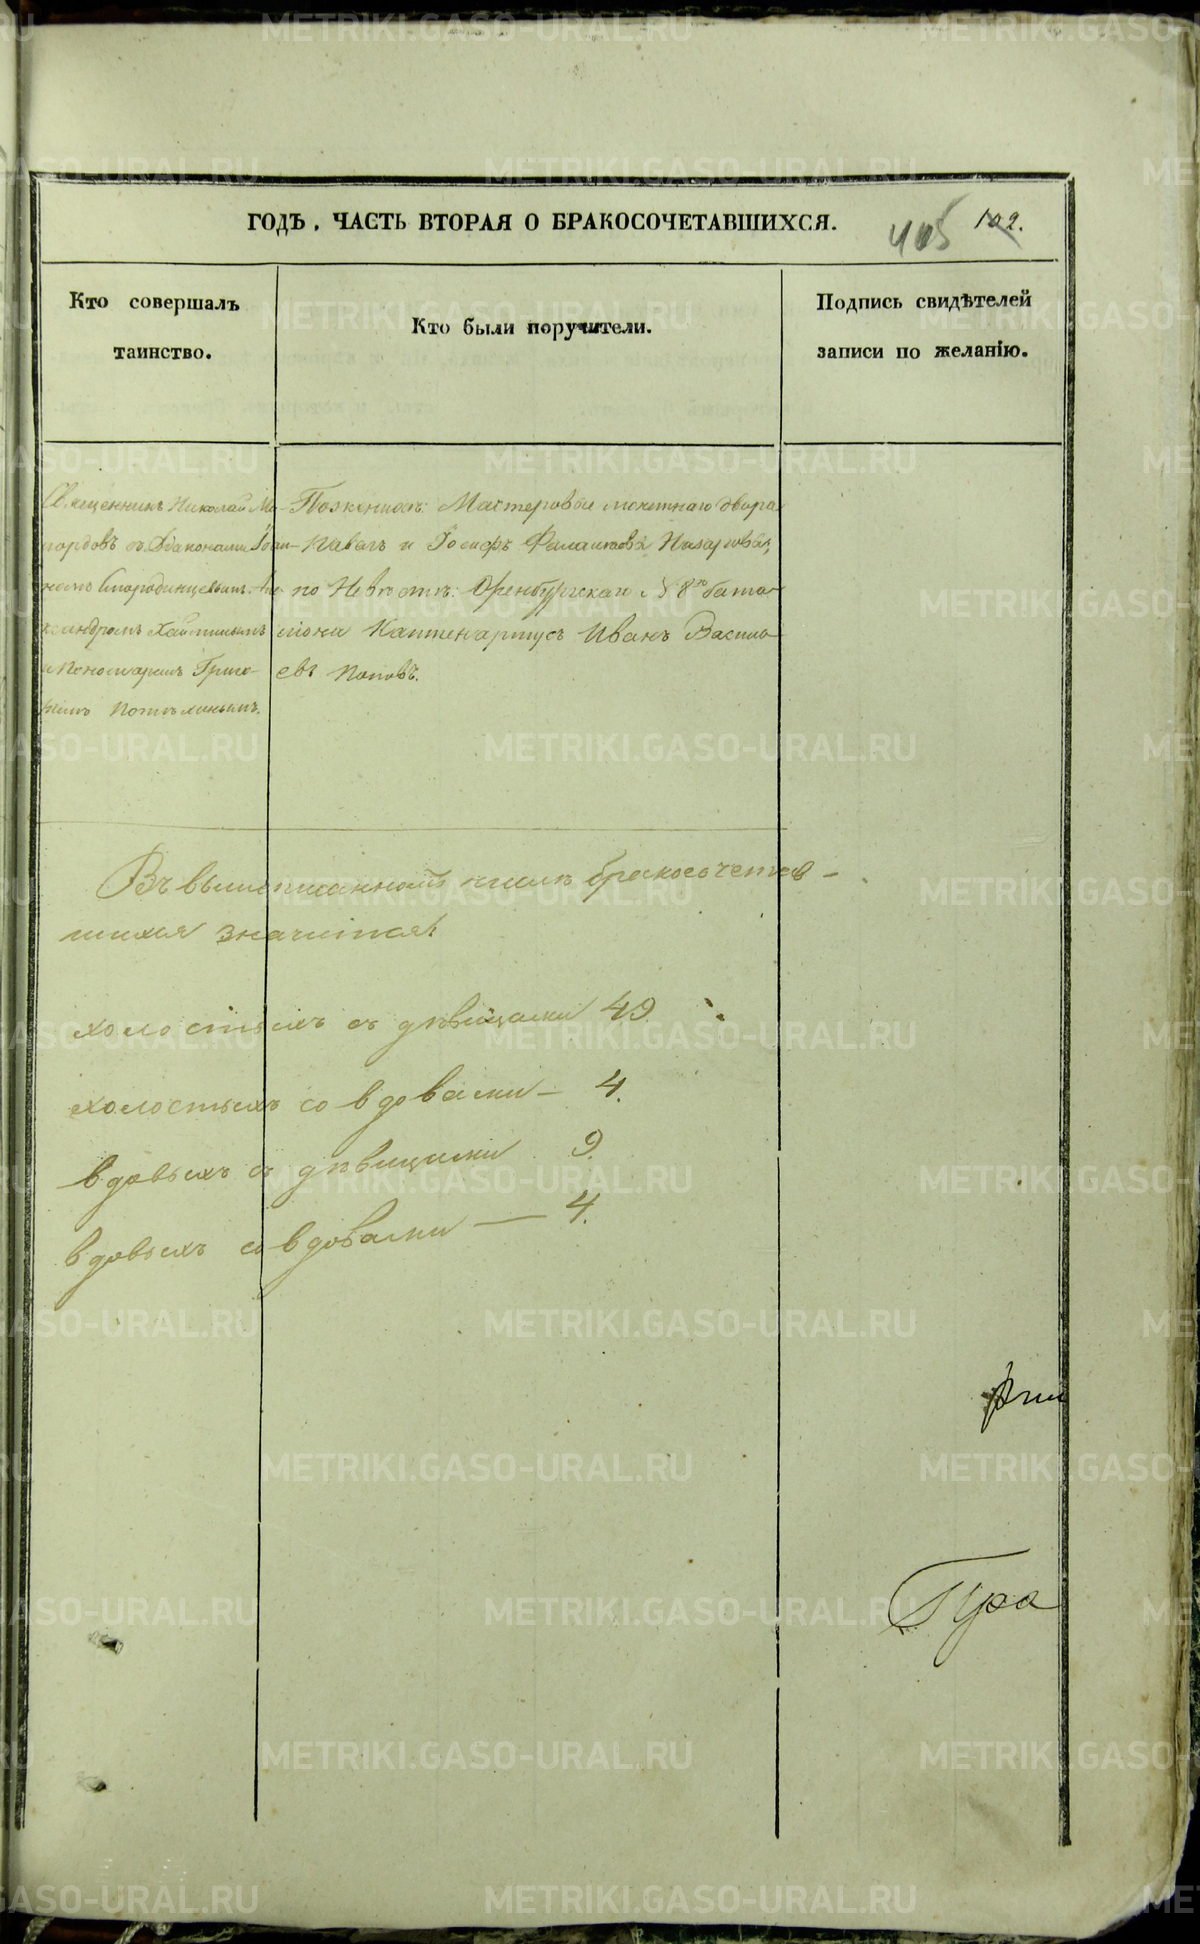 ГОДЪ. ЧАСТЬ ВТОРАЯ О БРАКОСОЧЕТАВШИХСЯ.
405 102.
Кто совершалъ
таинство.
Кто были поручители.
Подпись свидѣтелей
записи по желанію.
Священникъ Николай
съ Діаконами Іоан-
номъ Бородинцевымъ, Але-
ксандромъ
и Пономаремъ Григо-
ріемъ
По женихѣ: Мастеровые монетнаго двора
Павелъ и Іосифъ Назаровы,
по Невѣстѣ: Оренбургскаго № 8го бата-
ліона Каптенармусъ Иванъ Василь-
евъ Поповъ.
Въ вышеписанномъ числѣ бракосочетав-
шихся значится:
холостыхъ съ дѣвицами 49.
холостыхъ со вдовами – 4.
вдовыхъ съ дѣвицами 9.
вдовыхъ со вдовами — 4.
METRIKI.GASO-URAL.RU